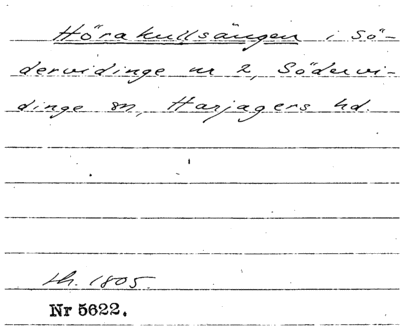 Hörakullsängen i Sö-
dervidinge nr 2, Södervi-
dinge sn, Harjagers hd.
1805.
Nr 5622.